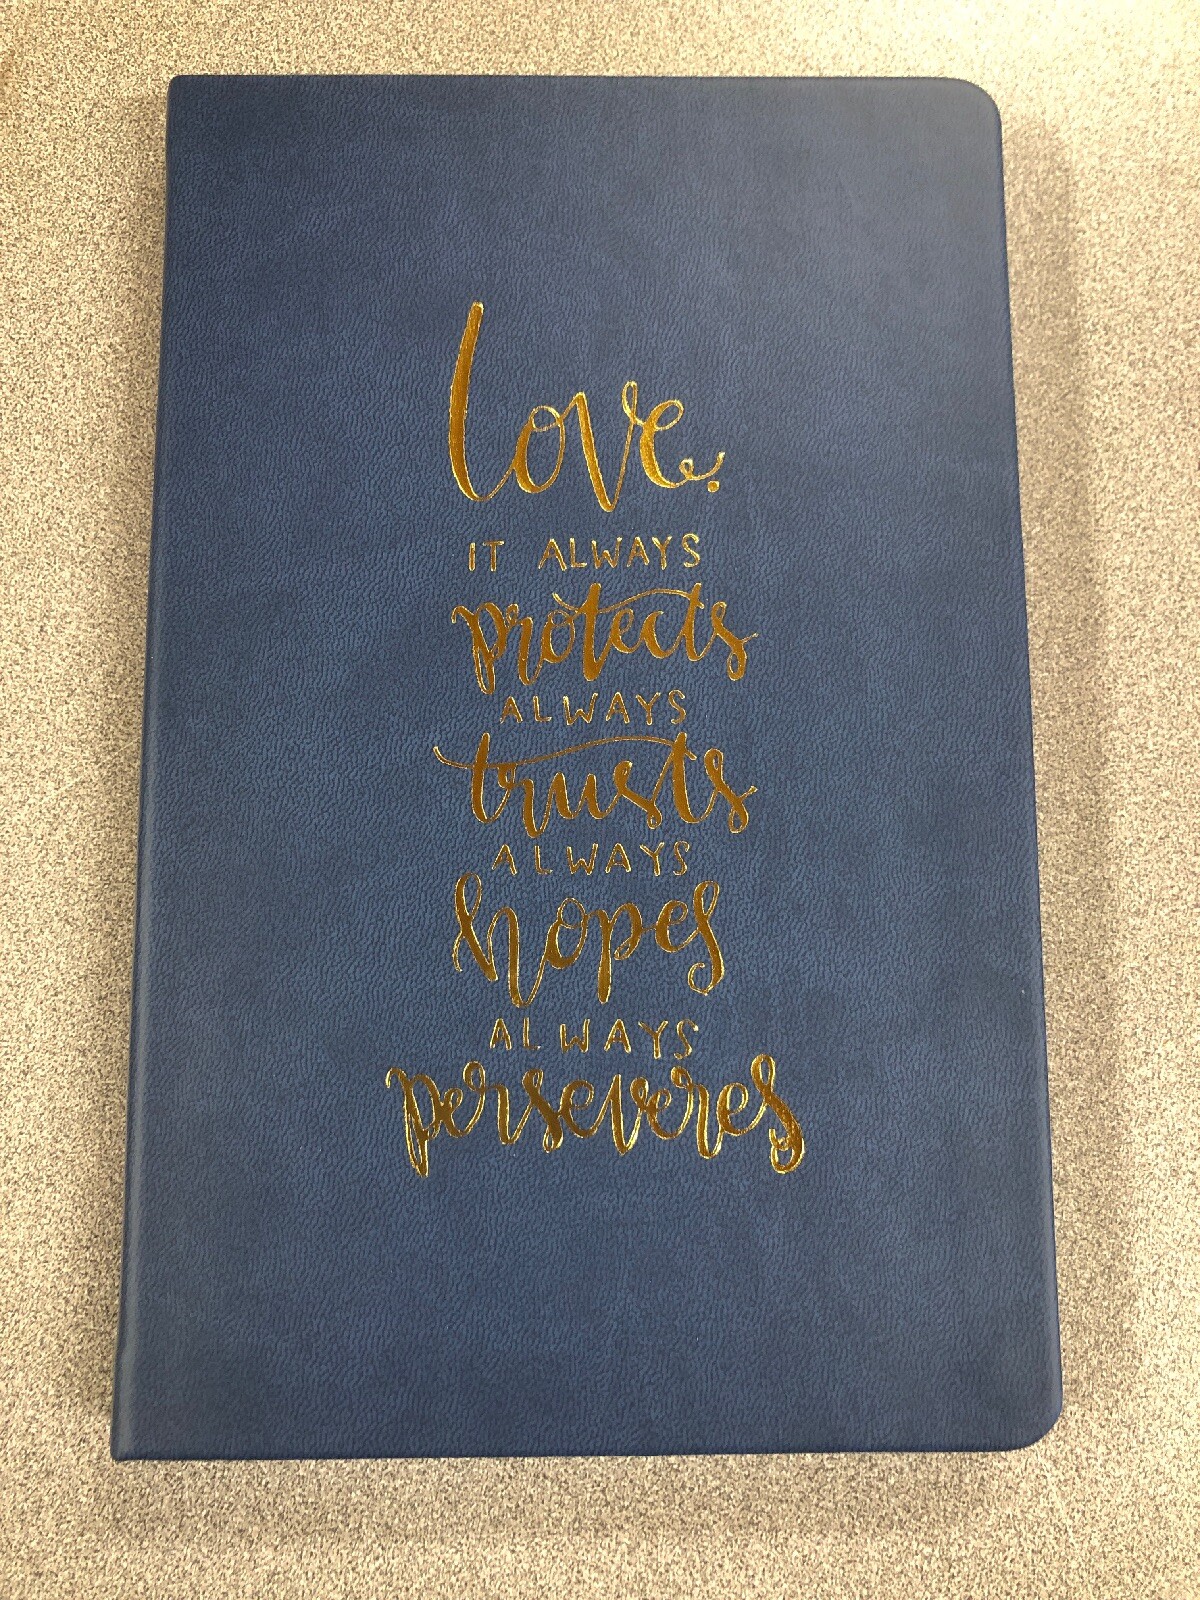 love.
IT ALWAYS
protects
ALWAYS
trusts
ALWAYS
hopes
ALWAYS
perseveres